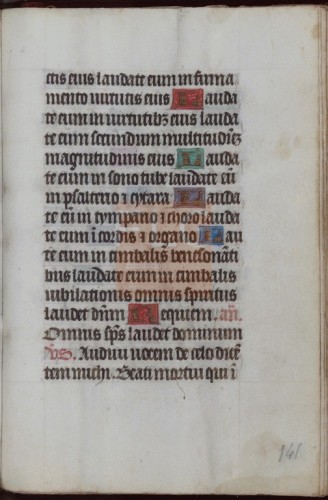 ctis eius laudate eum in firma
mento uirtutis eius Lauda
te eum in uirtutibꝫ eius lauda
te eum secundum multitudinē
magnitudinis eius Lauda
te eum in sono tube laudate eū
in psalterio ⁊ cytara Lauda
te eū in tympano ⁊ choro lauda
te eum ī cordis ⁊ organo Lau
te eum in cimbalis benesonāti
bus laudate eum in cimbalis
iubilationis omnis spiritus
laudet dn̄m Requiem. añ.
Omnis sp̄s laudet dominum
v̄s. Audiui uocem de celo dicē
tem michi. Beati mortui qui ī
148